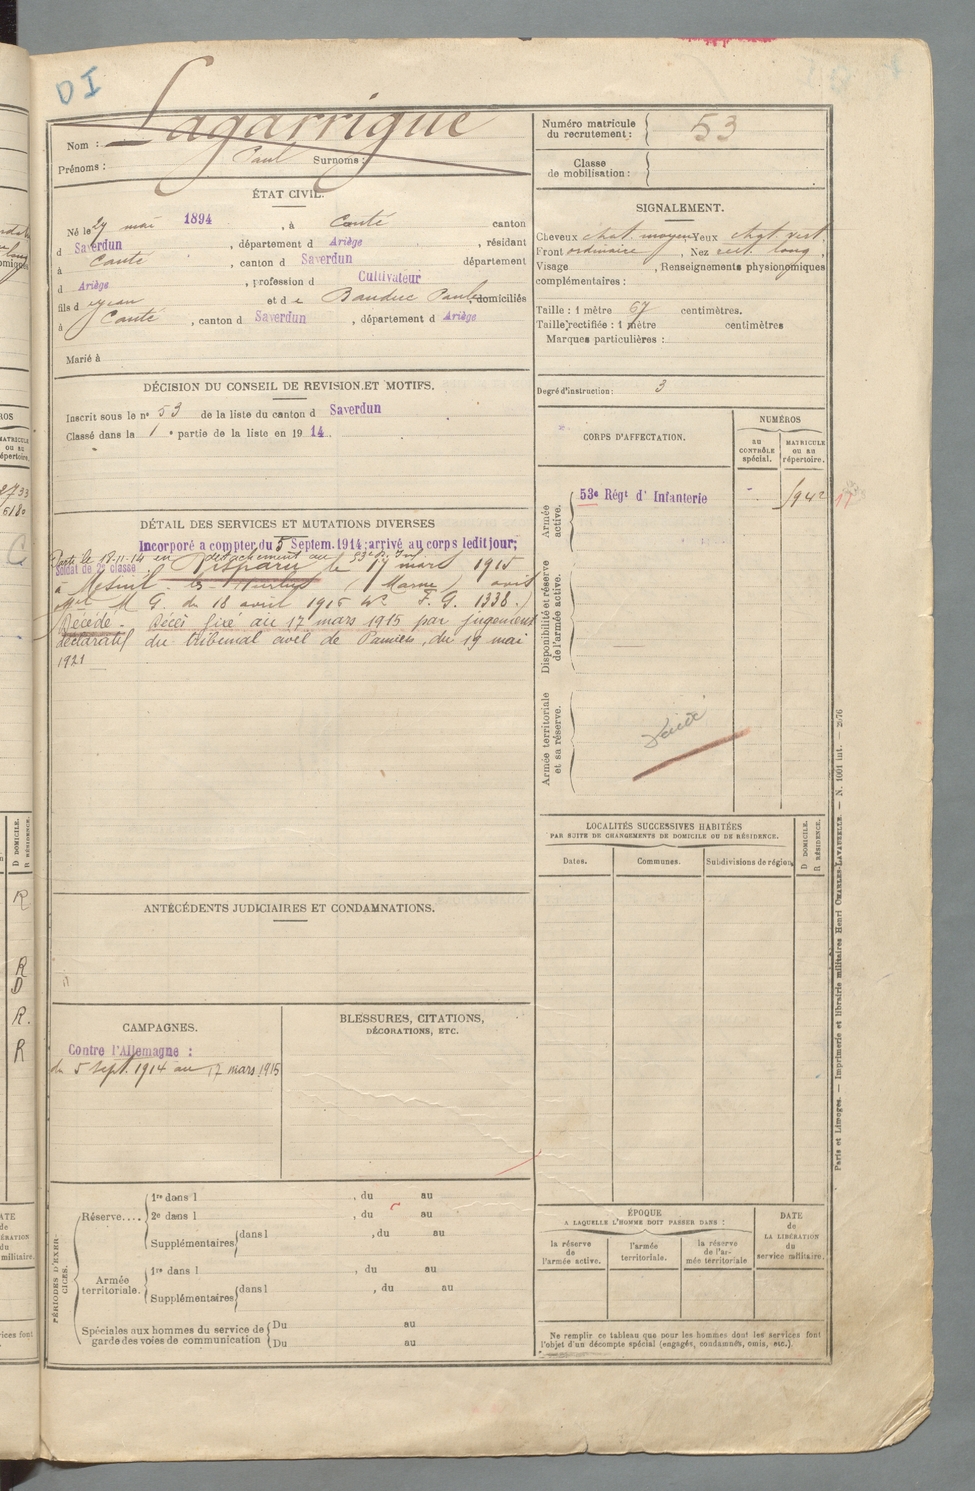 DI
Nom : Lagarrigue
Prénoms : Paul Surnoms :
ÉTAT CIVIL.
Né le 29 mai 1894, à Canté canton
d Saverdun, département d Ariège, résidant
à Canté, canton d Saverdun département
d Ariège, profession d Cultivateur
fils d Jean et de Bauduc Paule, domiciliés
à Canté, canton d Saverdun, département d Ariège
Marié à
DÉCISION DU CONSEIL DE REVISION ET MOTIFS.
Inscrit sous le n° 53 de la liste du canton d Saverdun
Classé dans la 1e partie de la liste en 1914.
DÉTAIL DES SERVICES ET MUTATIONS DIVERSES
Incorporé a compter du 5 Septem. 1914; arrivé au corps ledit jour;
Soldat de 2e classe
Parti le 18-11-14 en détachement au 53e R. Inf
Disparu le 17 mars 1915
à Mesnil-les-Hurlus (Marne) avis
Mel M G. du 18 avril 1915 No F. G. 1338.)
Décédé - Décès fixé au 17 mars 1915 par jugement
déclaratif du tribunal civil de Pamiers, du 19 mai
1921
ANTÉCÉDENTS JUDICIAIRES ET CONDAMNATIONS.
CAMPAGNES.
Contre l'Allemagne :
du 5 sept. 1914 au 17 mars 1915
BLESSURES, CITATIONS,
DÉCORATIONS, ETC.
PÉRIODES D'EXERCICES.
Réserve....
1re dans l , du au
2e dans l , du au
Supplémentaires dans l , du au
Armée territoriale.
1re dans l , du au
Supplémentaires dans l , du au
Spéciales aux hommes du service de garde des voies de communication
Du au
Du au
Numéro matricule
du recrutement : 53
Classe
de mobilisation :
SIGNALEMENT.
Cheveux chat. moyen Yeux chat. vert.
Front ordinaire, Nez rect. long,
Visage , Renseignements physionomiques
complémentaires :
Taille : 1 mètre 67 centimètres.
Taille rectifiée : 1 mètre centimètres
Marques particulières :
Degré d'instruction : 3
CORPS D'AFFECTATION.
NUMÉROS
au
CONTRÔLE
spécial.
MATRICULE
ou au
répertoire.
Armée
active.
53e Régt d' Infanterie
Disponibilité et réserve
de l'armée active.
Armée territoriale
et sa réserve.
LOCALITÉS SUCCESSIVES HABITÉES
PAR SUITE DE CHANGEMENTS DE DOMICILE OU DE RÉSIDENCE.
Dates.
Communes.
Subdivisions de région.
D DOMICILE.
R RÉSIDENCE.
ÉPOQUE
A LAQUELLE L'HOMME DOIT PASSER DANS :
la réserve
de
l'armée active.
l'armée
territoriale.
la réserve
de l'armée territoriale
DATE
de
LA LIBÉRATION
du
service militaire.
Ne remplir ce tableau que pour les hommes dont les services font
l'objet d'un décompte spécial (engagés, condamnés, omis, etc.).
Paris et Limoges. — Imprimerie et librairie militaires Henri CHARLES-LAVAUZELLE. — N. 1001 int. — 2676